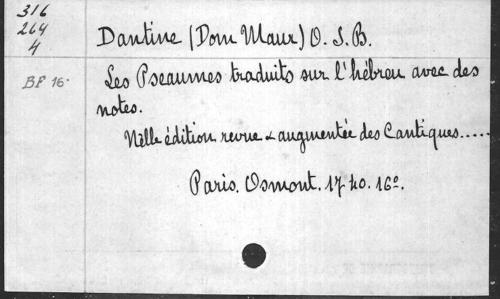 316
264
4
Dantine (Dom Maur) O. S. B.
BF 16.
Les Pseaumes traduits sur l'hébreu avec des
notes.
Nelle édition revue & augmentée des Cantiques.....
Paris. Osmont. 1740. 16°.